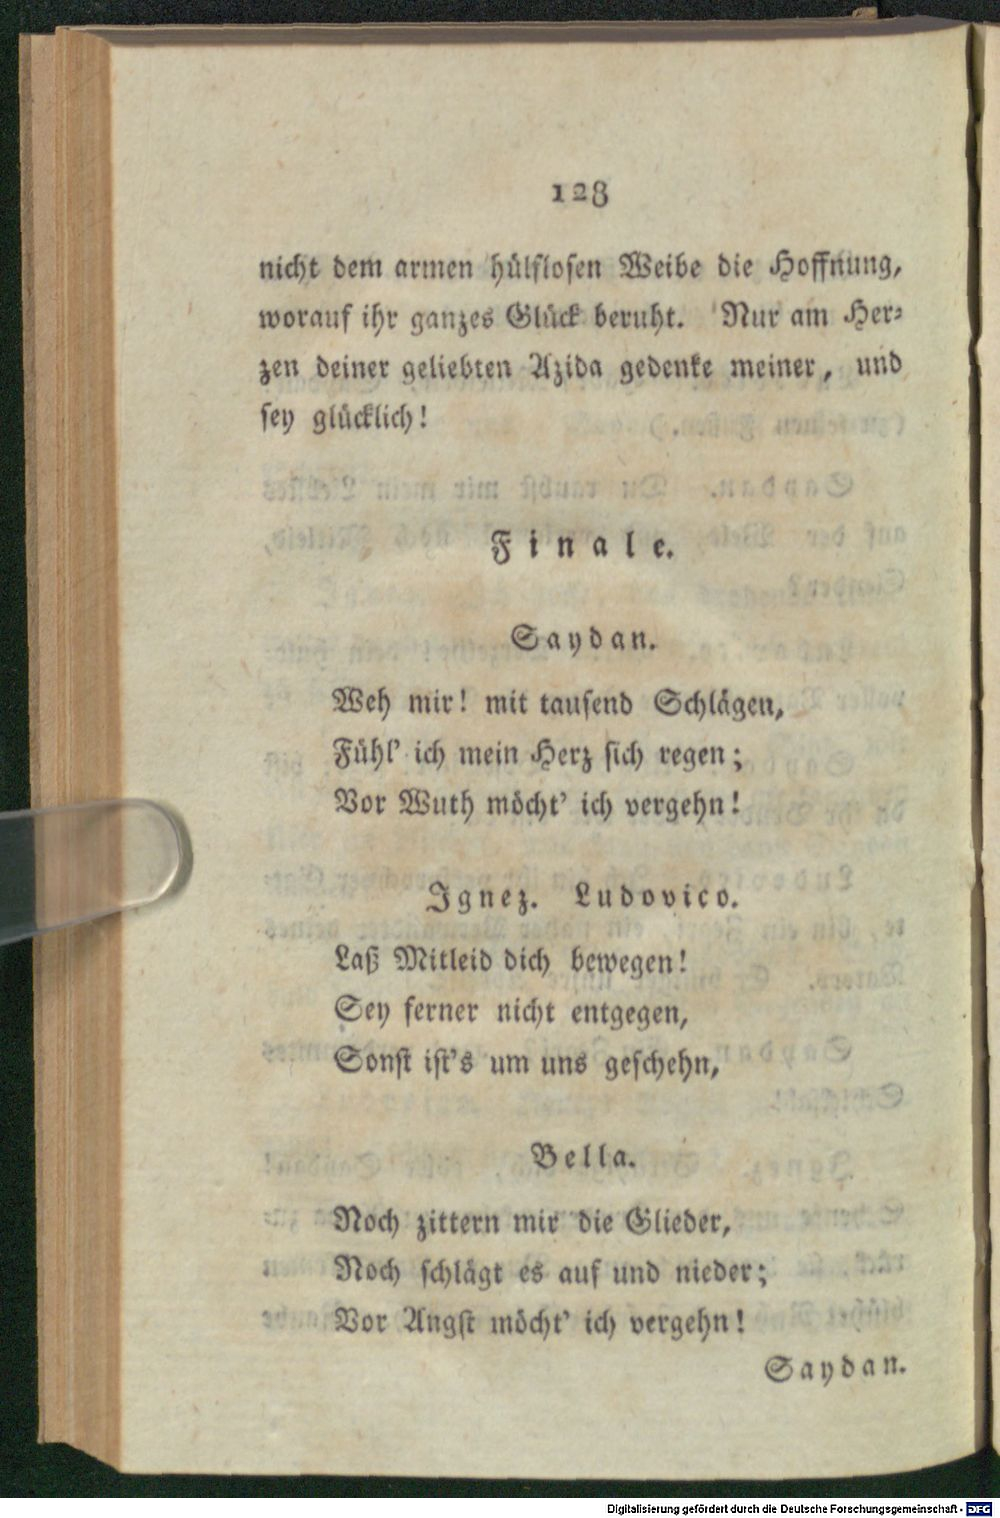 128
nicht dem armen hülflosen Weibe die Hoffnung,
worauf ihr ganzes Glück beruht. Nur am Her-
zen deiner geliebten Azida gedenke meiner, und
sey glücklich!
Finale.
Saydan.
Weh mir! mit tausend Schlägen,
Fühl' ich mein Herz sich regen;
Vor Wuth möcht' ich vergehn!
Ignez. Ludovico.
Laß Mitleid dich bewegen!
Sey ferner nicht entgegen,
Sonst ist's um uns geschehn,
Bella.
Noch zittern mir die Glieder,
Noch schlägt es auf und nieder;
Vor Angst möcht' ich vergehn!
Saydan.
Digitalisierung gefördert durch die Deutsche Forschungsgemeinschaft - DFG